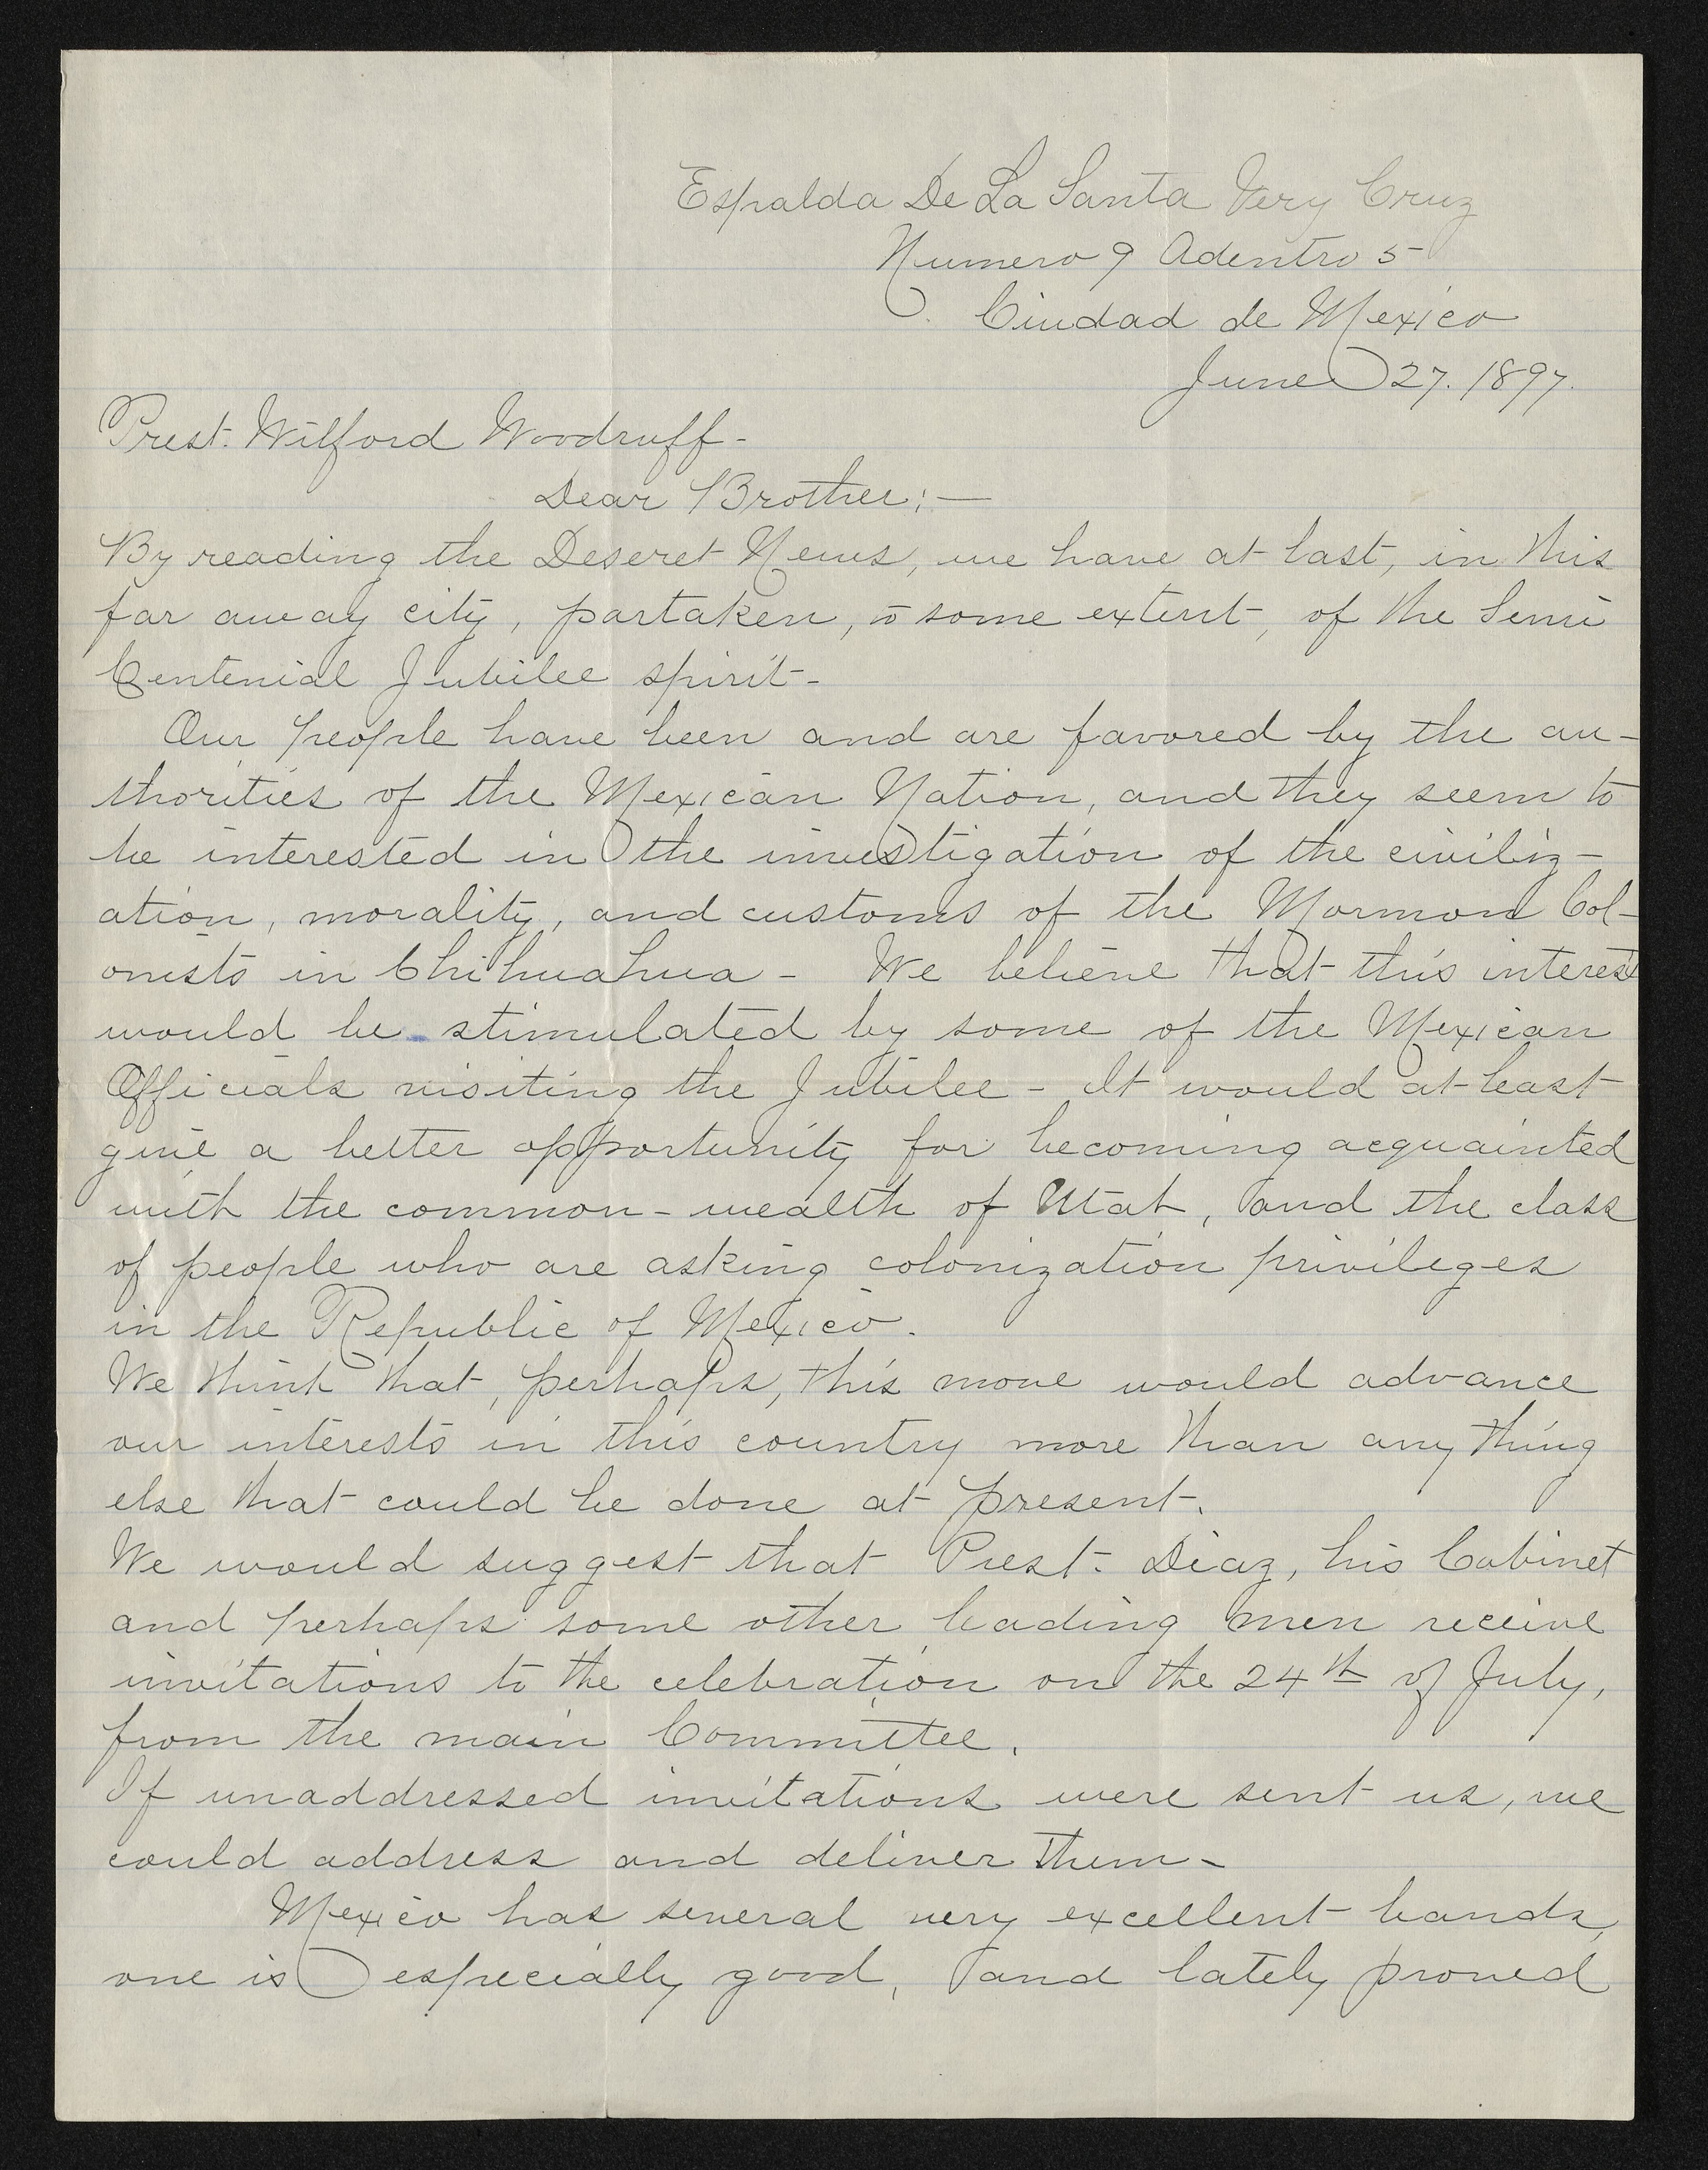 Espalda De La Santa Very Cruz
Numero 9 Adentro 5
Ciudad de Mexico
June 27. 1897.
Prest. Wilford Woodruff-
Dear Brother;—
By reading the Deseret News, we have at last, in this
far away city, partaken, to some extent, of the Semi
Centenial Jubilee spirit-
Our people have been and are favored by the au-
thorities of the Mexican Nation, and they seem to
be interested in the investigation of the civiliz-
ation, morality, and customs of the Mormon Col-
onists in Chihuahua - We believe that this interest
would be stimulated by some of the Mexican
Officials visiting the Jubilee - It would at least
give a better opportunity for becoming acquainted
with the common-wealth of Utah, and the class
of people who are asking colonization privileges
in the Republic of Mexico.
We think that, perhaps, this move would advance
our interests in this country more than any thing
else that could be done at present.
We would suggest that Prest. Diaz, his Cabinet
and perhaps some other leading men receive
invitations to the celebration on the 24th of July,
from the main Committee.
If unaddressed invitations were sent us, we
could address and deliver them-
Mexico has several very excellent bands,
one is especially good, and lately proved